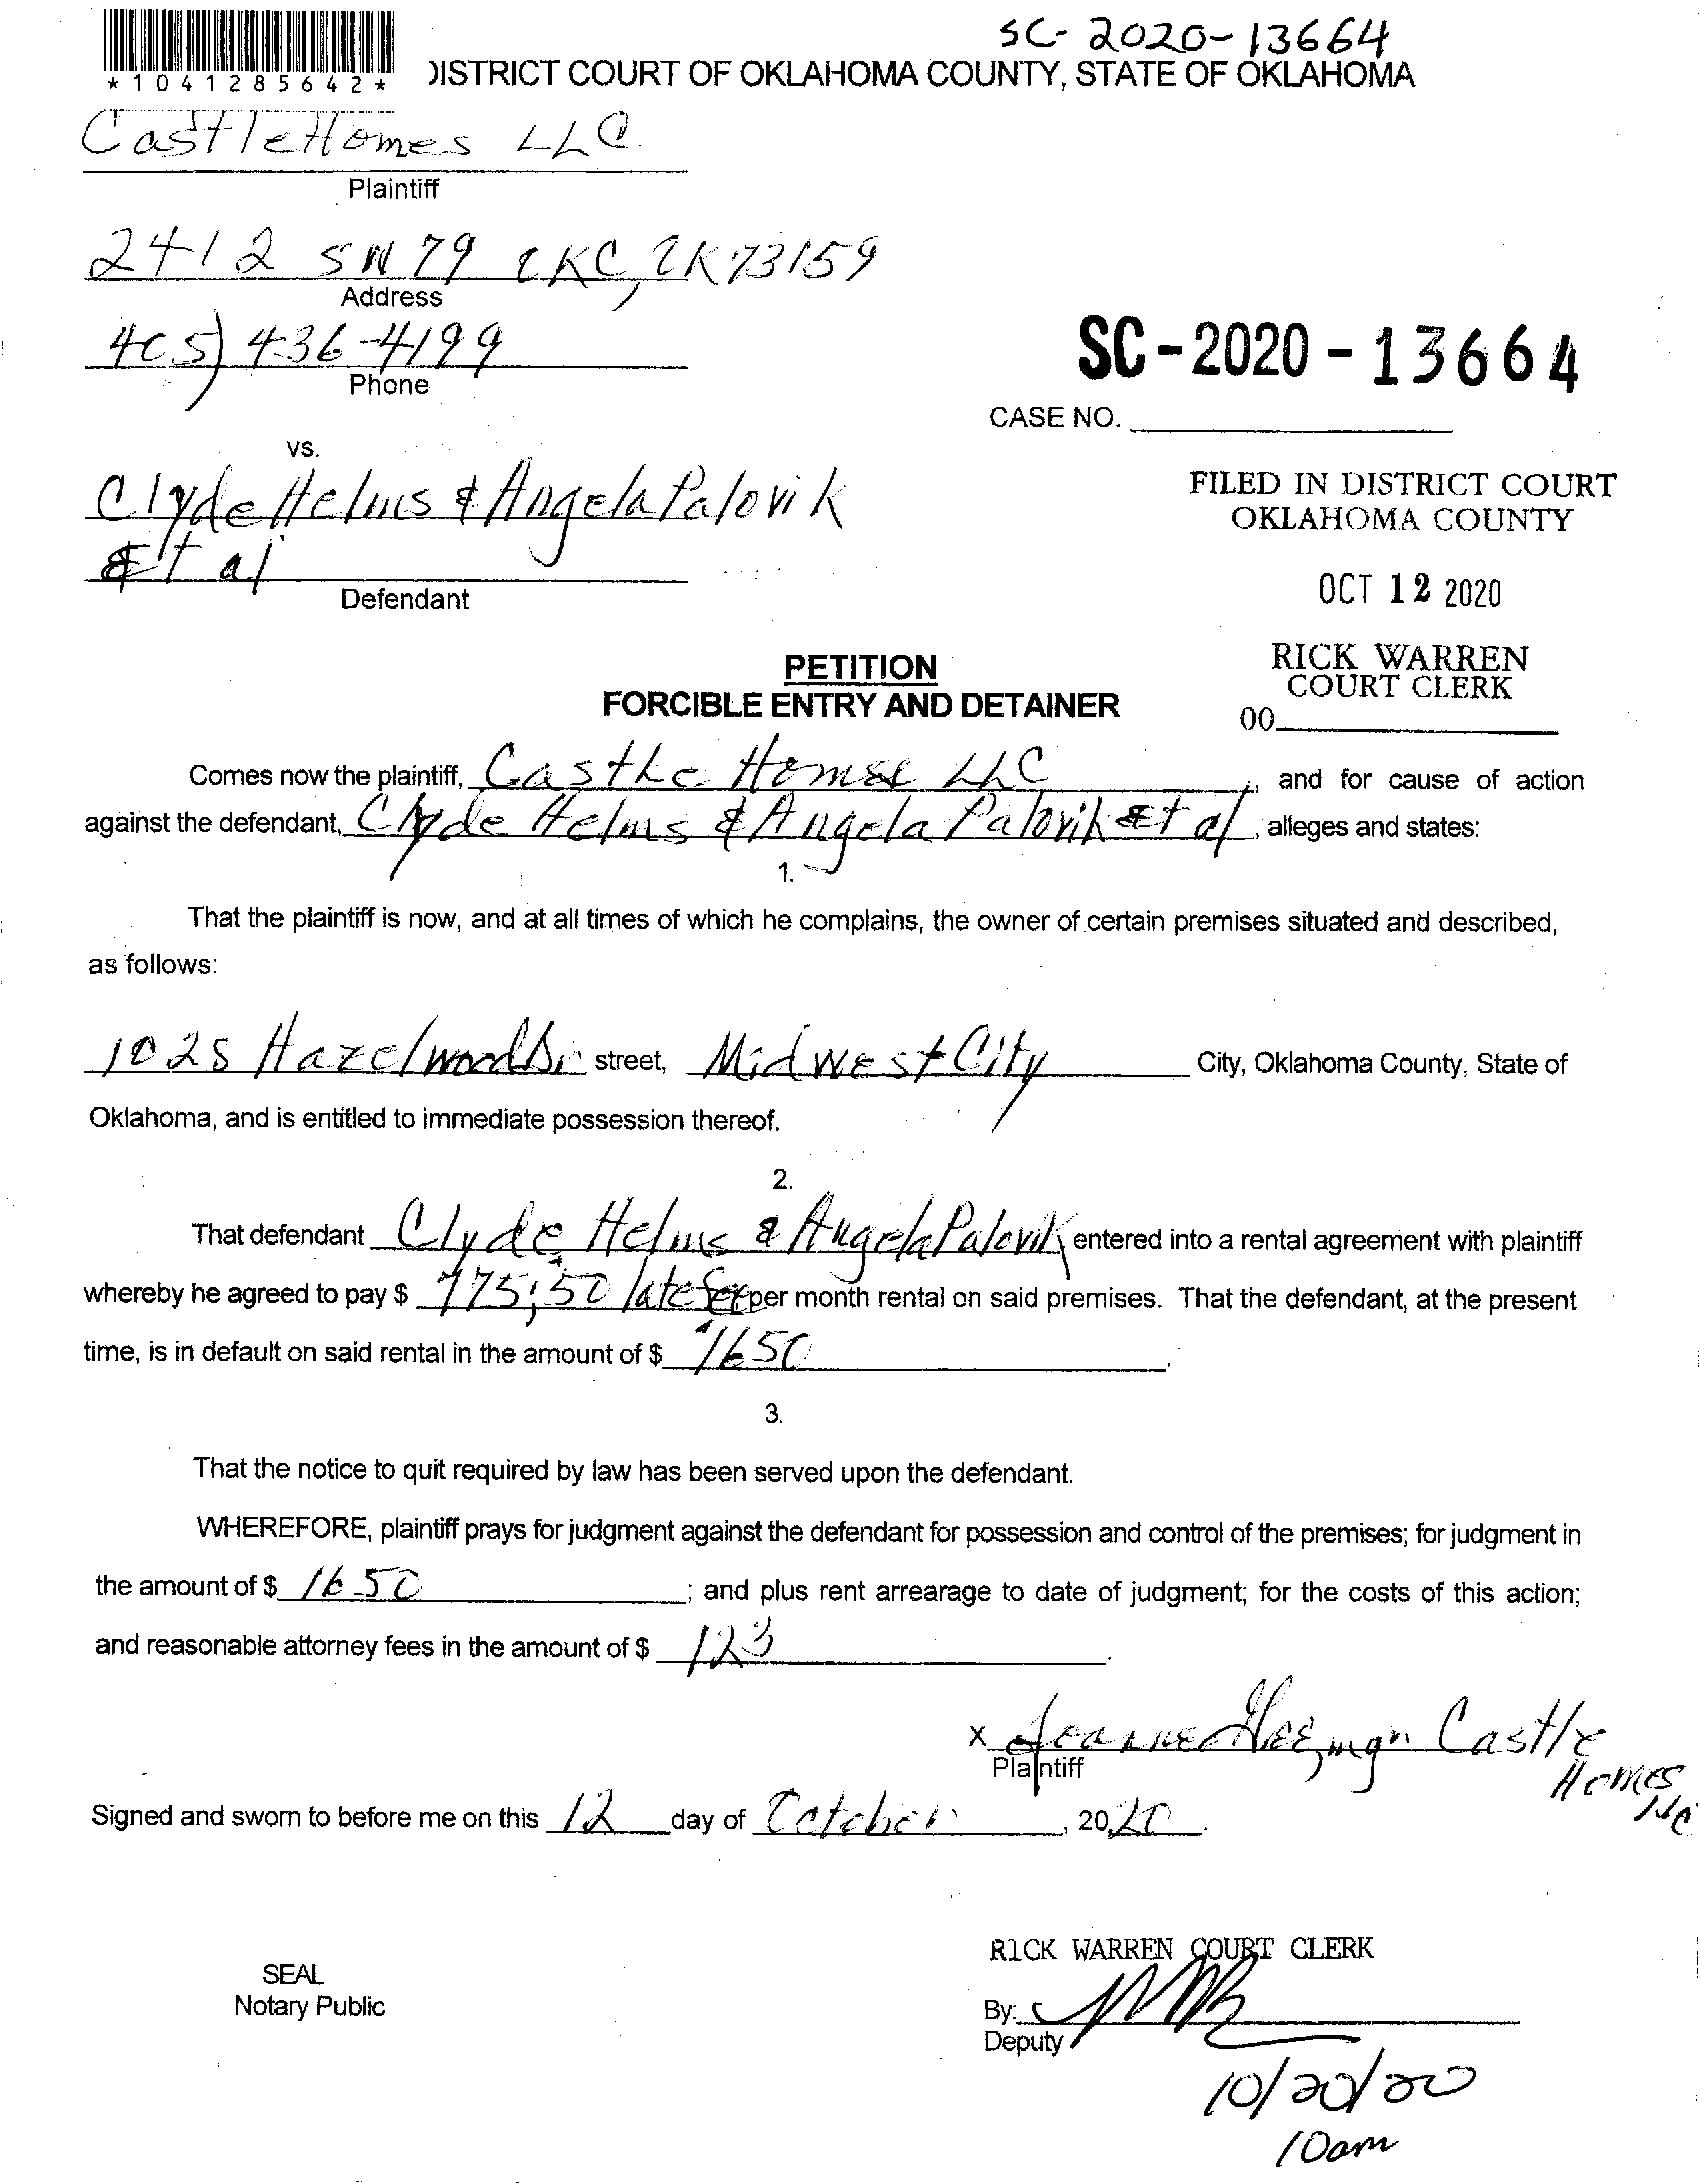 SC-2020-13664
*1041285642* DISTRICT COURT OF OKLAHOMA COUNTY, STATE OF OKLAHOMA
CastleHomes LLC
Plaintiff
2412 SW 79 OKC, OK 73159
Address
405) 436-4199
Phone
SC-2020-13664
CASE NO.
vs.
Clyde Helms & Angela Palovik
Et al
Defendant
FILED IN DISTRICT COURT
OKLAHOMA COUNTY
OCT 12 2020
RICK WARREN
COURT CLERK
00
PETITION
FORCIBLE ENTRY AND DETAINER
Comes now the plaintiff, Castle Homes LLC, and for cause of action
against the defendant, Clyde Helms & Angela Palovik Et al, alleges and states:
1.
That the plaintiff is now, and at all times of which he complains, the owner of certain premises situated and described,
as follows:
1025 Hazelwood Dr street, Midwest City City, Oklahoma County, State of
Oklahoma, and is entitled to immediate possession thereof.
2.
That defendant Clyde Helms & Angela Palovik entered into a rental agreement with plaintiff
whereby he agreed to pay $ 775; 50 late fee per month rental on said premises. That the defendant, at the present
time, is in default on said rental in the amount of $ 1650.
3.
That the notice to quit required by law has been served upon the defendant.
WHEREFORE, plaintiff prays for judgment against the defendant for possession and control of the premises; for judgment in
the amount of $ 1650; and plus rent arrearage to date of judgment; for the costs of this action;
and reasonable attorney fees in the amount of $ 123.
x Joanne Castle
Homes
LLC
Plaintiff
Signed and sworn to before me on this 12 day of October, 2020.
RICK WARREN COURT CLERK
SEAL
Notary Public
By:
Deputy
10/20/20
10am